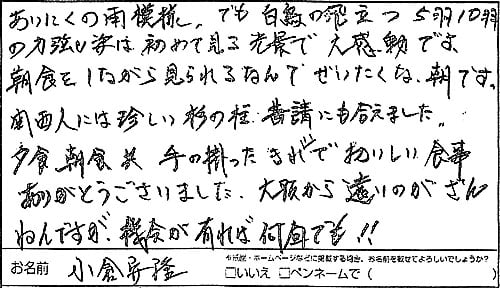 あいにくの雨模様、でも白鷺の飛立つ5羽10羽
の力強い姿は初めて見る光景で大感動です。
朝食をしながら見られるなんてぜいたくな、朝です。
関西人には珍しい杉の柱、普請にも合えました。
夕食朝食共 手の掛った きれいでおいしい食事
ありがとうございました。大阪から遠いのがざん
ねんですが、機会が有れば何回でも!!
お名前 小倉昇隆
※広報・ホームページなどに掲載する場合、お名前を載せてよろしいでしょうか?
□いいえ □ペンネームで (